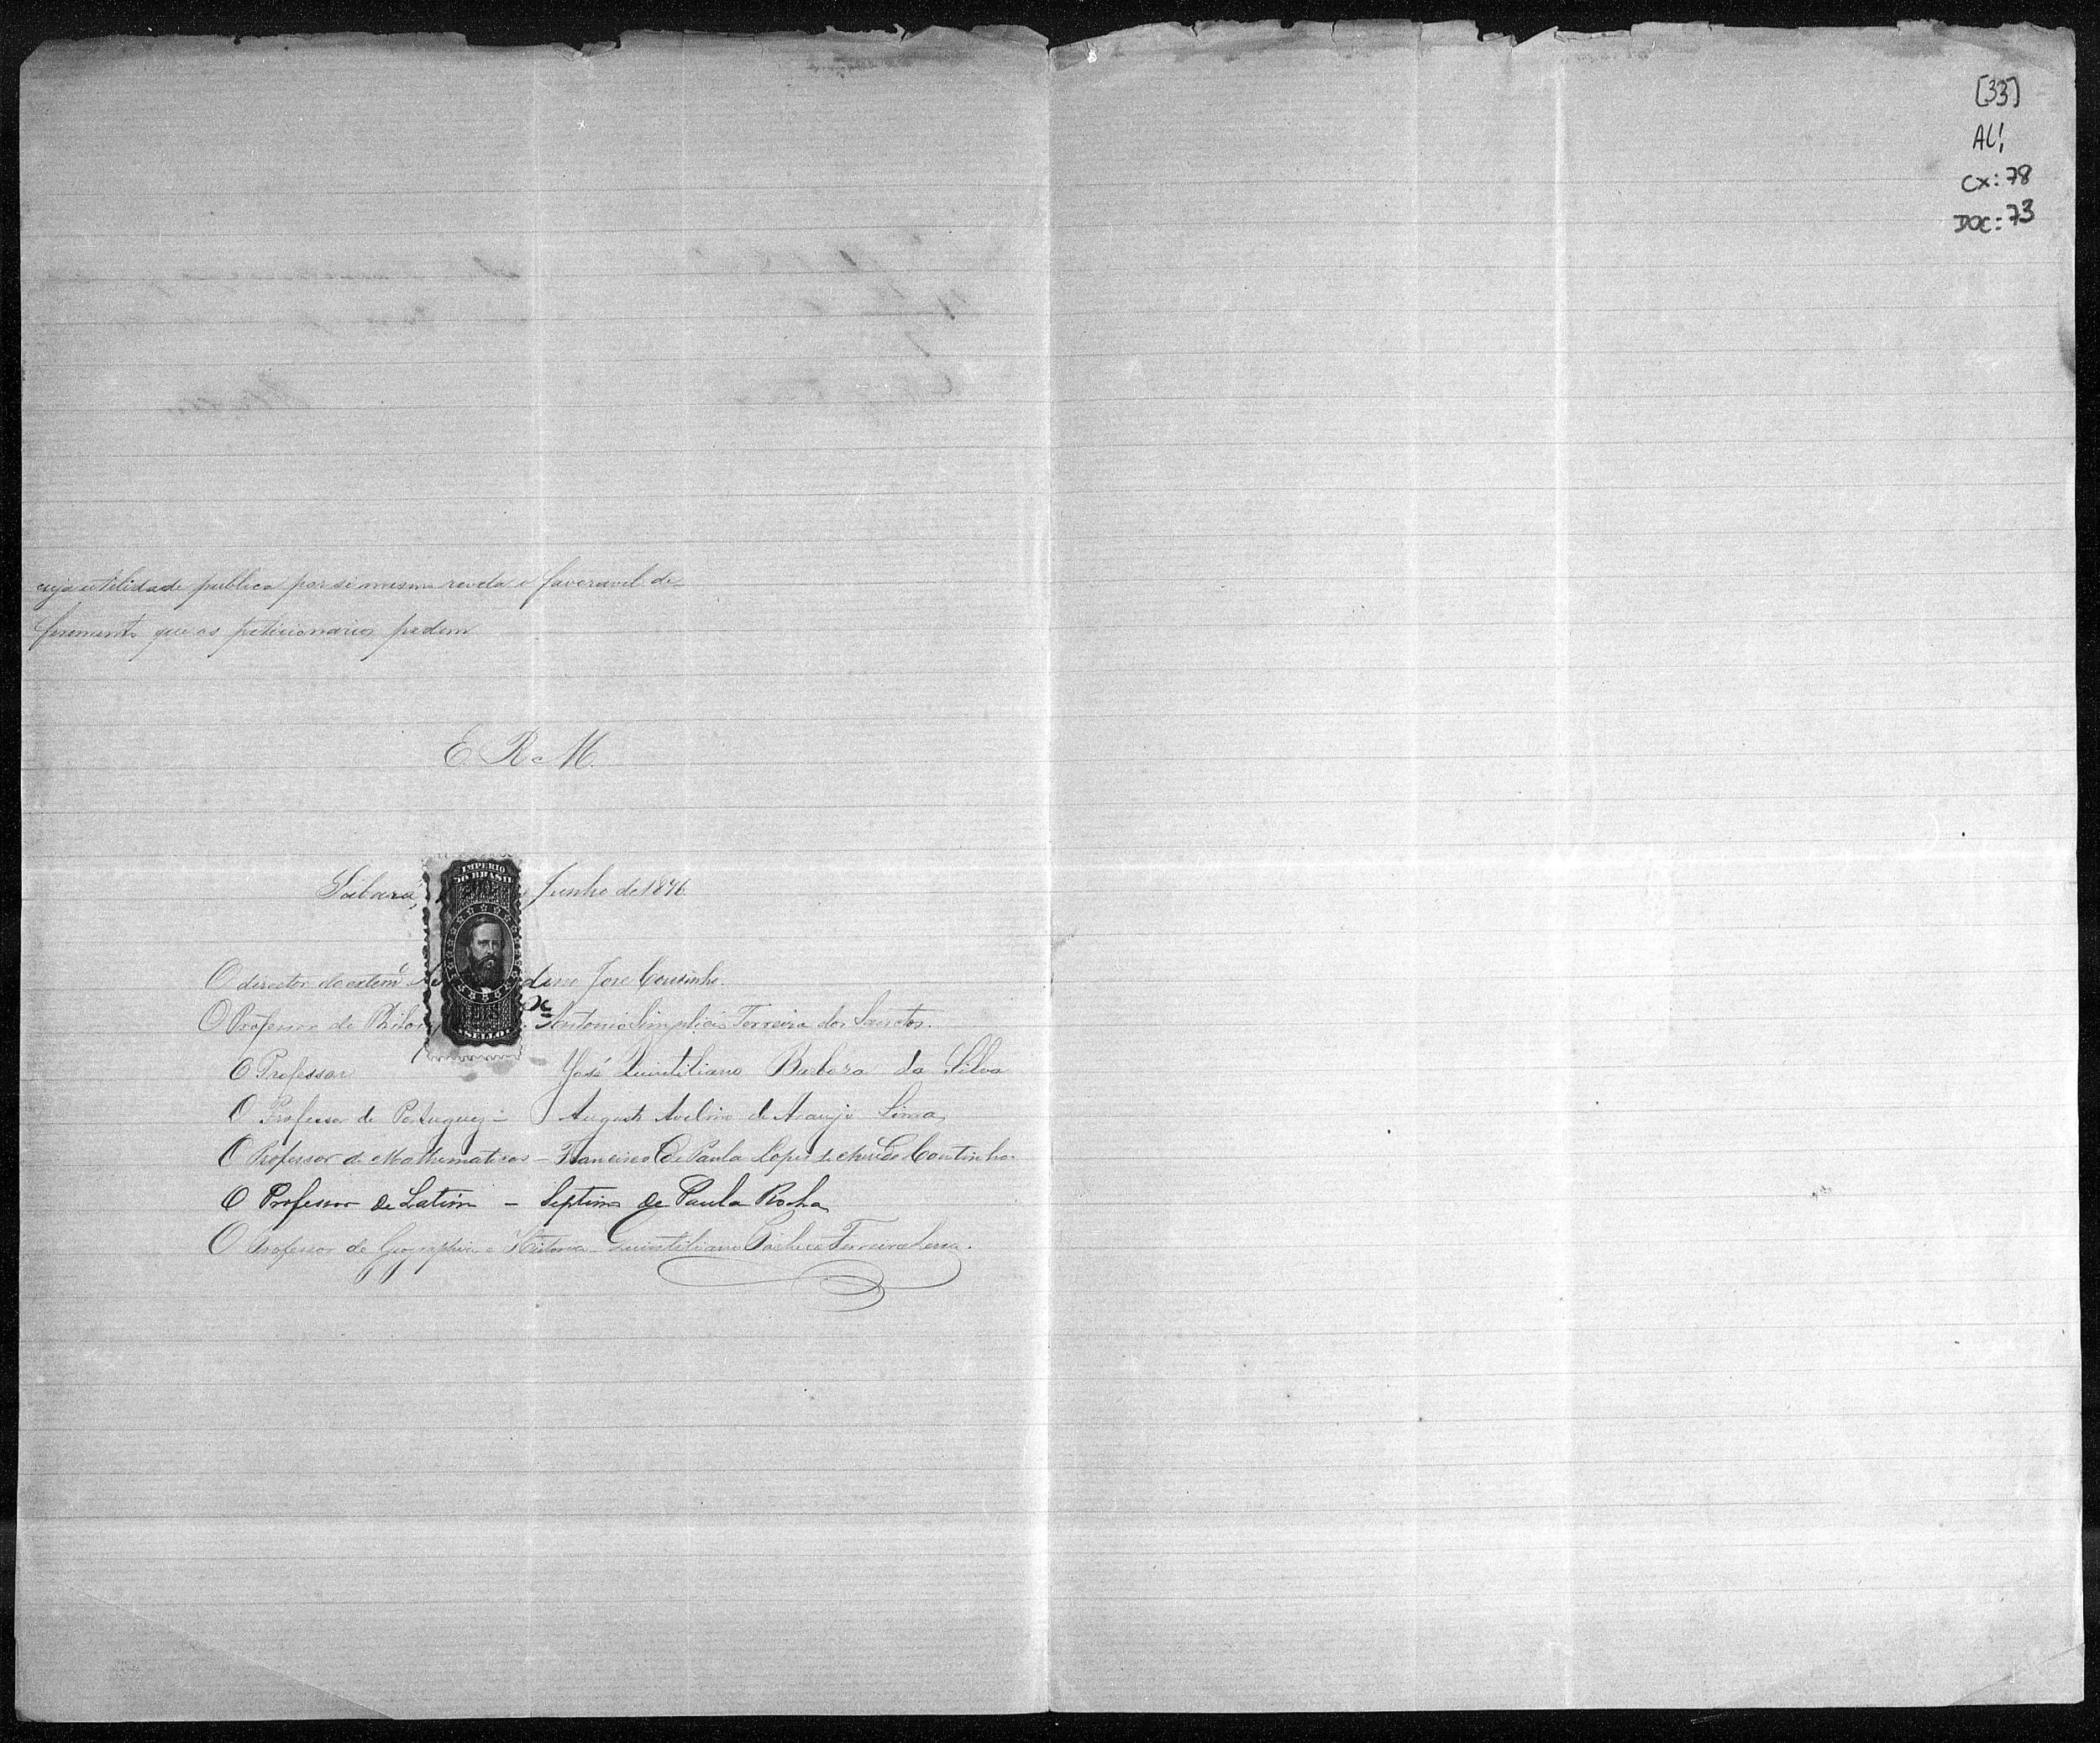 [33]
AL!
CX: 78
DOC: 73
cuja utilidade publica por si mesma revela o favoravel de-
ferimento que os peticionarios pedem
E. R. M.
Sabará, Junho de 1876
IMPERIO
DO BRASIL
O director do extern.o José Coutinho.
O Professor de Philos Antonio Simplicio Ferreira dos Sanctos.
SELLO
O Professor José Quintiliano Barboza da Silva
O Professor de Portuguez - Augusto Avelino de Araujo Lima
O Professor de Mathematicas - Francisco de Paula Lopes de Coutinho.
O Professor de Latim - Septimo de Paula Rocha
O Professor de Geographia e Historia - Quintiliano Pacheco Ferreira Lessa.